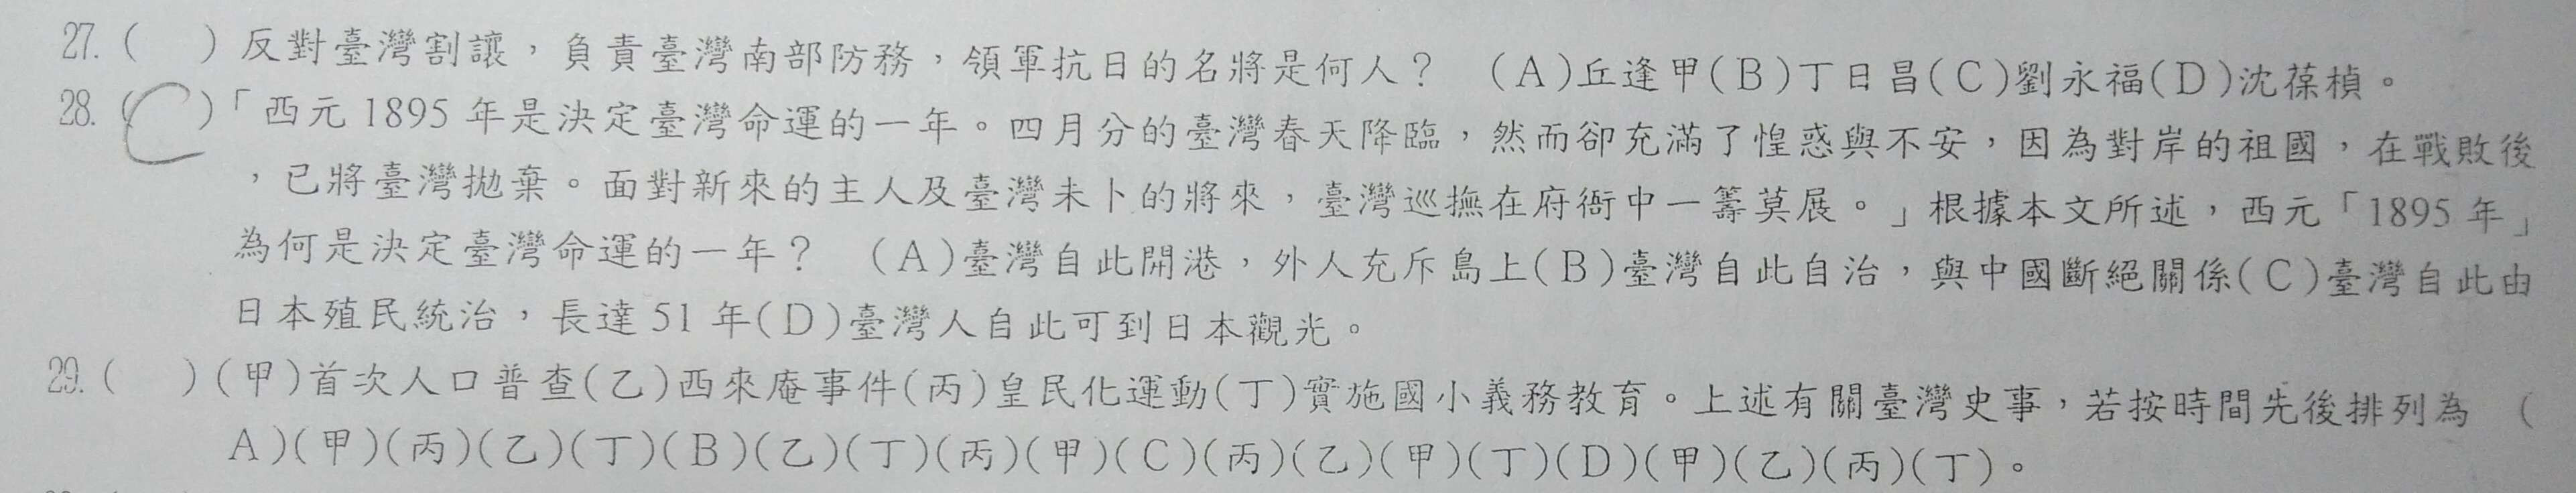 27. (　) 反對臺灣割讓，負責臺灣南部防務，領軍抗日的名將是何人？ (A)丘逢甲(B)丁日昌(C)劉永福(D)沈葆楨。
28. (C)「西元 1895 年是決定臺灣命運的一年。四月分的臺灣春天降臨，然而卻充滿了惶惑與不安，因為對岸的祖國，在戰敗後
，已將臺灣拋棄。面對新來的主人及臺灣未卜的將來，臺灣巡撫在府衙中一籌莫展。」根據本文所述，西元「1895 年」
為何是決定臺灣命運的一年？ (A)臺灣自此開港，外人充斥島上(B)臺灣自此自治，與中國斷絕關係(C)臺灣自此由
日本殖民統治，長達 51 年(D)臺灣人自此可到日本觀光。
29. (　) (甲)首次人口普查(乙)西來庵事件(丙)皇民化運動(丁)實施國小義務教育。上述有關臺灣史事，若按時間先後排列為 (
A)(甲)(丙)(乙)(丁)(B)(乙)(丁)(丙)(甲)(C)(丙)(乙)(甲)(丁)(D)(甲)(乙)(丙)(丁)。